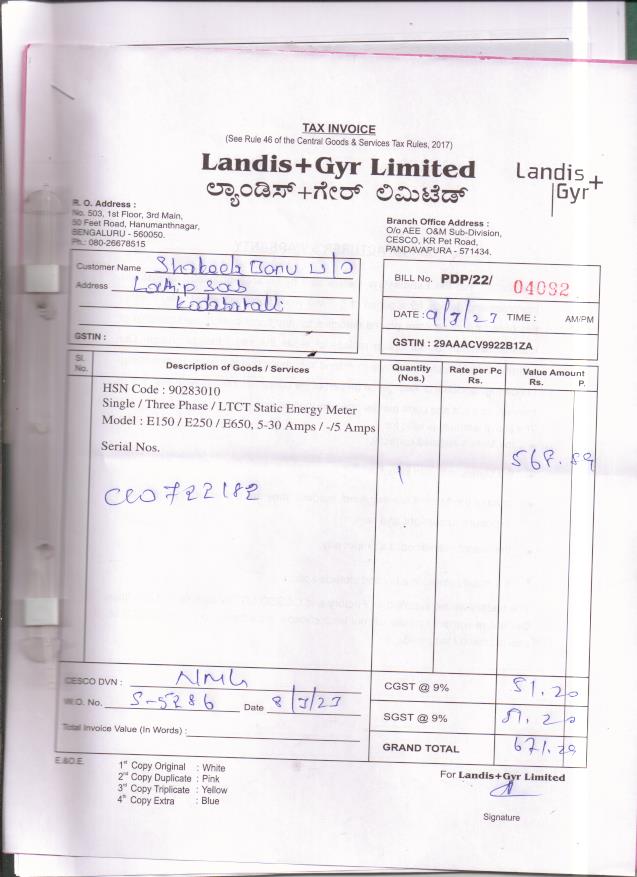 TAX INVOICE
(See Rule 46 of the Central Goods & Services Tax Rules, 2017)
Landis+Gyr Limited
ಲ್ಯಾಂಡಿಸ್+ಗೇರ್ ಲಿಮಿಟೆಡ್
Landis+
Gyr
R. O. Address :
No. 503, 1st Floor, 3rd Main,
50 Feet Road, Hanumanthnagar,
BENGALURU - 560050.
Ph.: 080-26678515
Branch Office Address :
O/o AEE O&M Sub-Division,
CESCO, KR Pet Road,
PANDAVAPURA - 571434.
Customer Name Shakeela Banu W/O
Address
GSTIN :
BILL No. PDP/22/ 04092
DATE : 9/3/23 TIME : AM/PM
GSTIN : 29AAACV9922B1ZA
Sl. No. Description of Goods / Services Quantity (Nos.) Rate per Pc Rs. Value Amount Rs. P.
HSN Code : 90283010
Single / Three Phase / LTCT Static Energy Meter
Model : E150 / E250 / E650, 5-30 Amps / -/5 Amps
Serial Nos.
1 568.89
C00722182
CESCO DVN : NMG
W.O. No. S-5286 Date 8/3/23
Total Invoice Value (In Words) :
CGST @ 9% 51.20
SGST @ 9% 51.20
GRAND TOTAL 671.29
E.&O.E.
1st Copy Original : White
2nd Copy Duplicate : Pink
3rd Copy Triplicate : Yellow
4th Copy Extra : Blue
For Landis+Gyr Limited
Signature